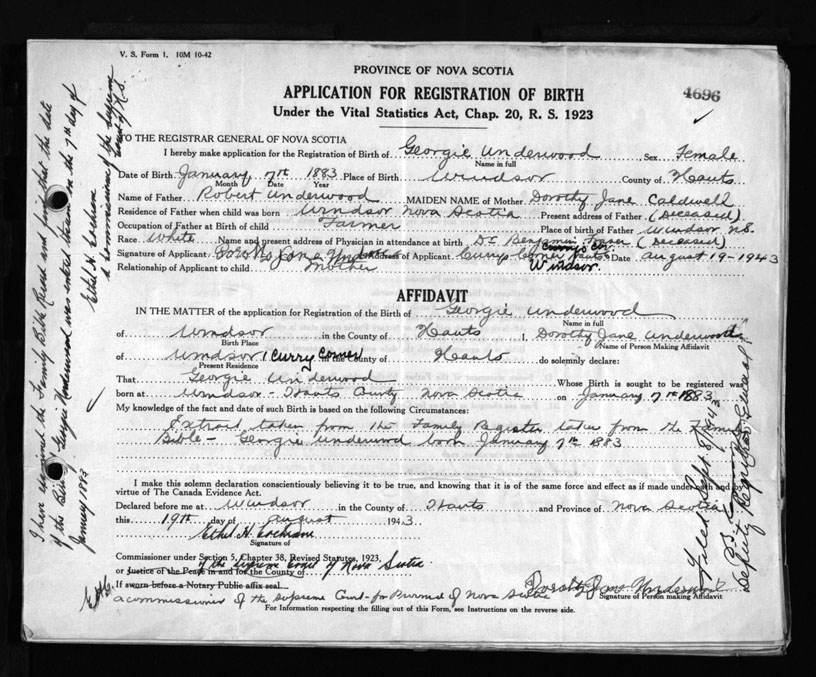 V. S. Form 1. 10M 10-42
PROVINCE OF NOVA SCOTIA
4696
APPLICATION FOR REGISTRATION OF BIRTH
Under the Vital Statistics Act, Chap. 20, R. S. 1923
TO THE REGISTRAR GENERAL OF NOVA SCOTIA
I hereby make application for the Registration of Birth of Georgie Underwood Sex Female
Name in full
Date of Birth January 7th 1883 Place of Birth Windsor County of Hants
Month Date Year
Name of Father Robert Underwood MAIDEN NAME of Mother Dorothy Jane Caldwell
Residence of Father when child was born Windsor Nova Scotia Present address of Father (Deceased)
Occupation of Father at Birth of child Farmer Place of birth of Father Windsor N.S.
Race White Name and present address of Physician in attendance at birth Dr Benjamin (Deceased)
Signature of Applicant Jane Underwood Address of Applicant Currys Corner Hants Date August 19-1943
Relationship of Applicant to child Mother Windsor.
AFFIDAVIT
IN THE MATTER of the application for Registration of the Birth of Georgie Underwood
Name in full
of Windsor in the County of Hants I, Dorothy Jane Underwood
Birth Place Name of Person Making Affidavit
of Windsor, Curry Corner in the County of Hants do solemnly declare:
Present Residence
That Georgie Underwood Whose Birth is sought to be registered was
born at Windsor - Hants County Nova Scotia on January 7th 1883
My knowledge of the fact and date of such Birth is based on the following Circumstances:
Extract taken from the Family Register taken from the Family
Bible - Georgie Underwood born January 7th 1883
I make this solemn declaration conscientiously believing it to be true, and knowing that it is of the same force and effect as if made under oath and by
virtue of The Canada Evidence Act.
Declared before me at Windsor in the County of Hants and Province of Nova Scotia
this 19th day of August 1943.
Ethel H. Cochram
Signature of
Commissioner under Section 5, Chapter 38, Revised Statutes, 1923,
of the Supreme Court of Nova Scotia
or Justice of the Peace in and for the County of
If sworn before a Notary Public affix seal
EHC.
a commissioner of the Supreme Court for Province of Nova Scotia
Dorothy Jane Underwood
Signature of Person making Affidavit
For Information respecting the filling out of this Form, see Instructions on the reverse side.
I have examined the Family Bible Record and find that the date
of the Birth of Georgie Underwood was entered therein on the 7th day of
January 1883
Ethel H. Cochram
a commissioner of the Supreme
Court of N.S.
Filed Sept 8/1943
Deputy Registrar General